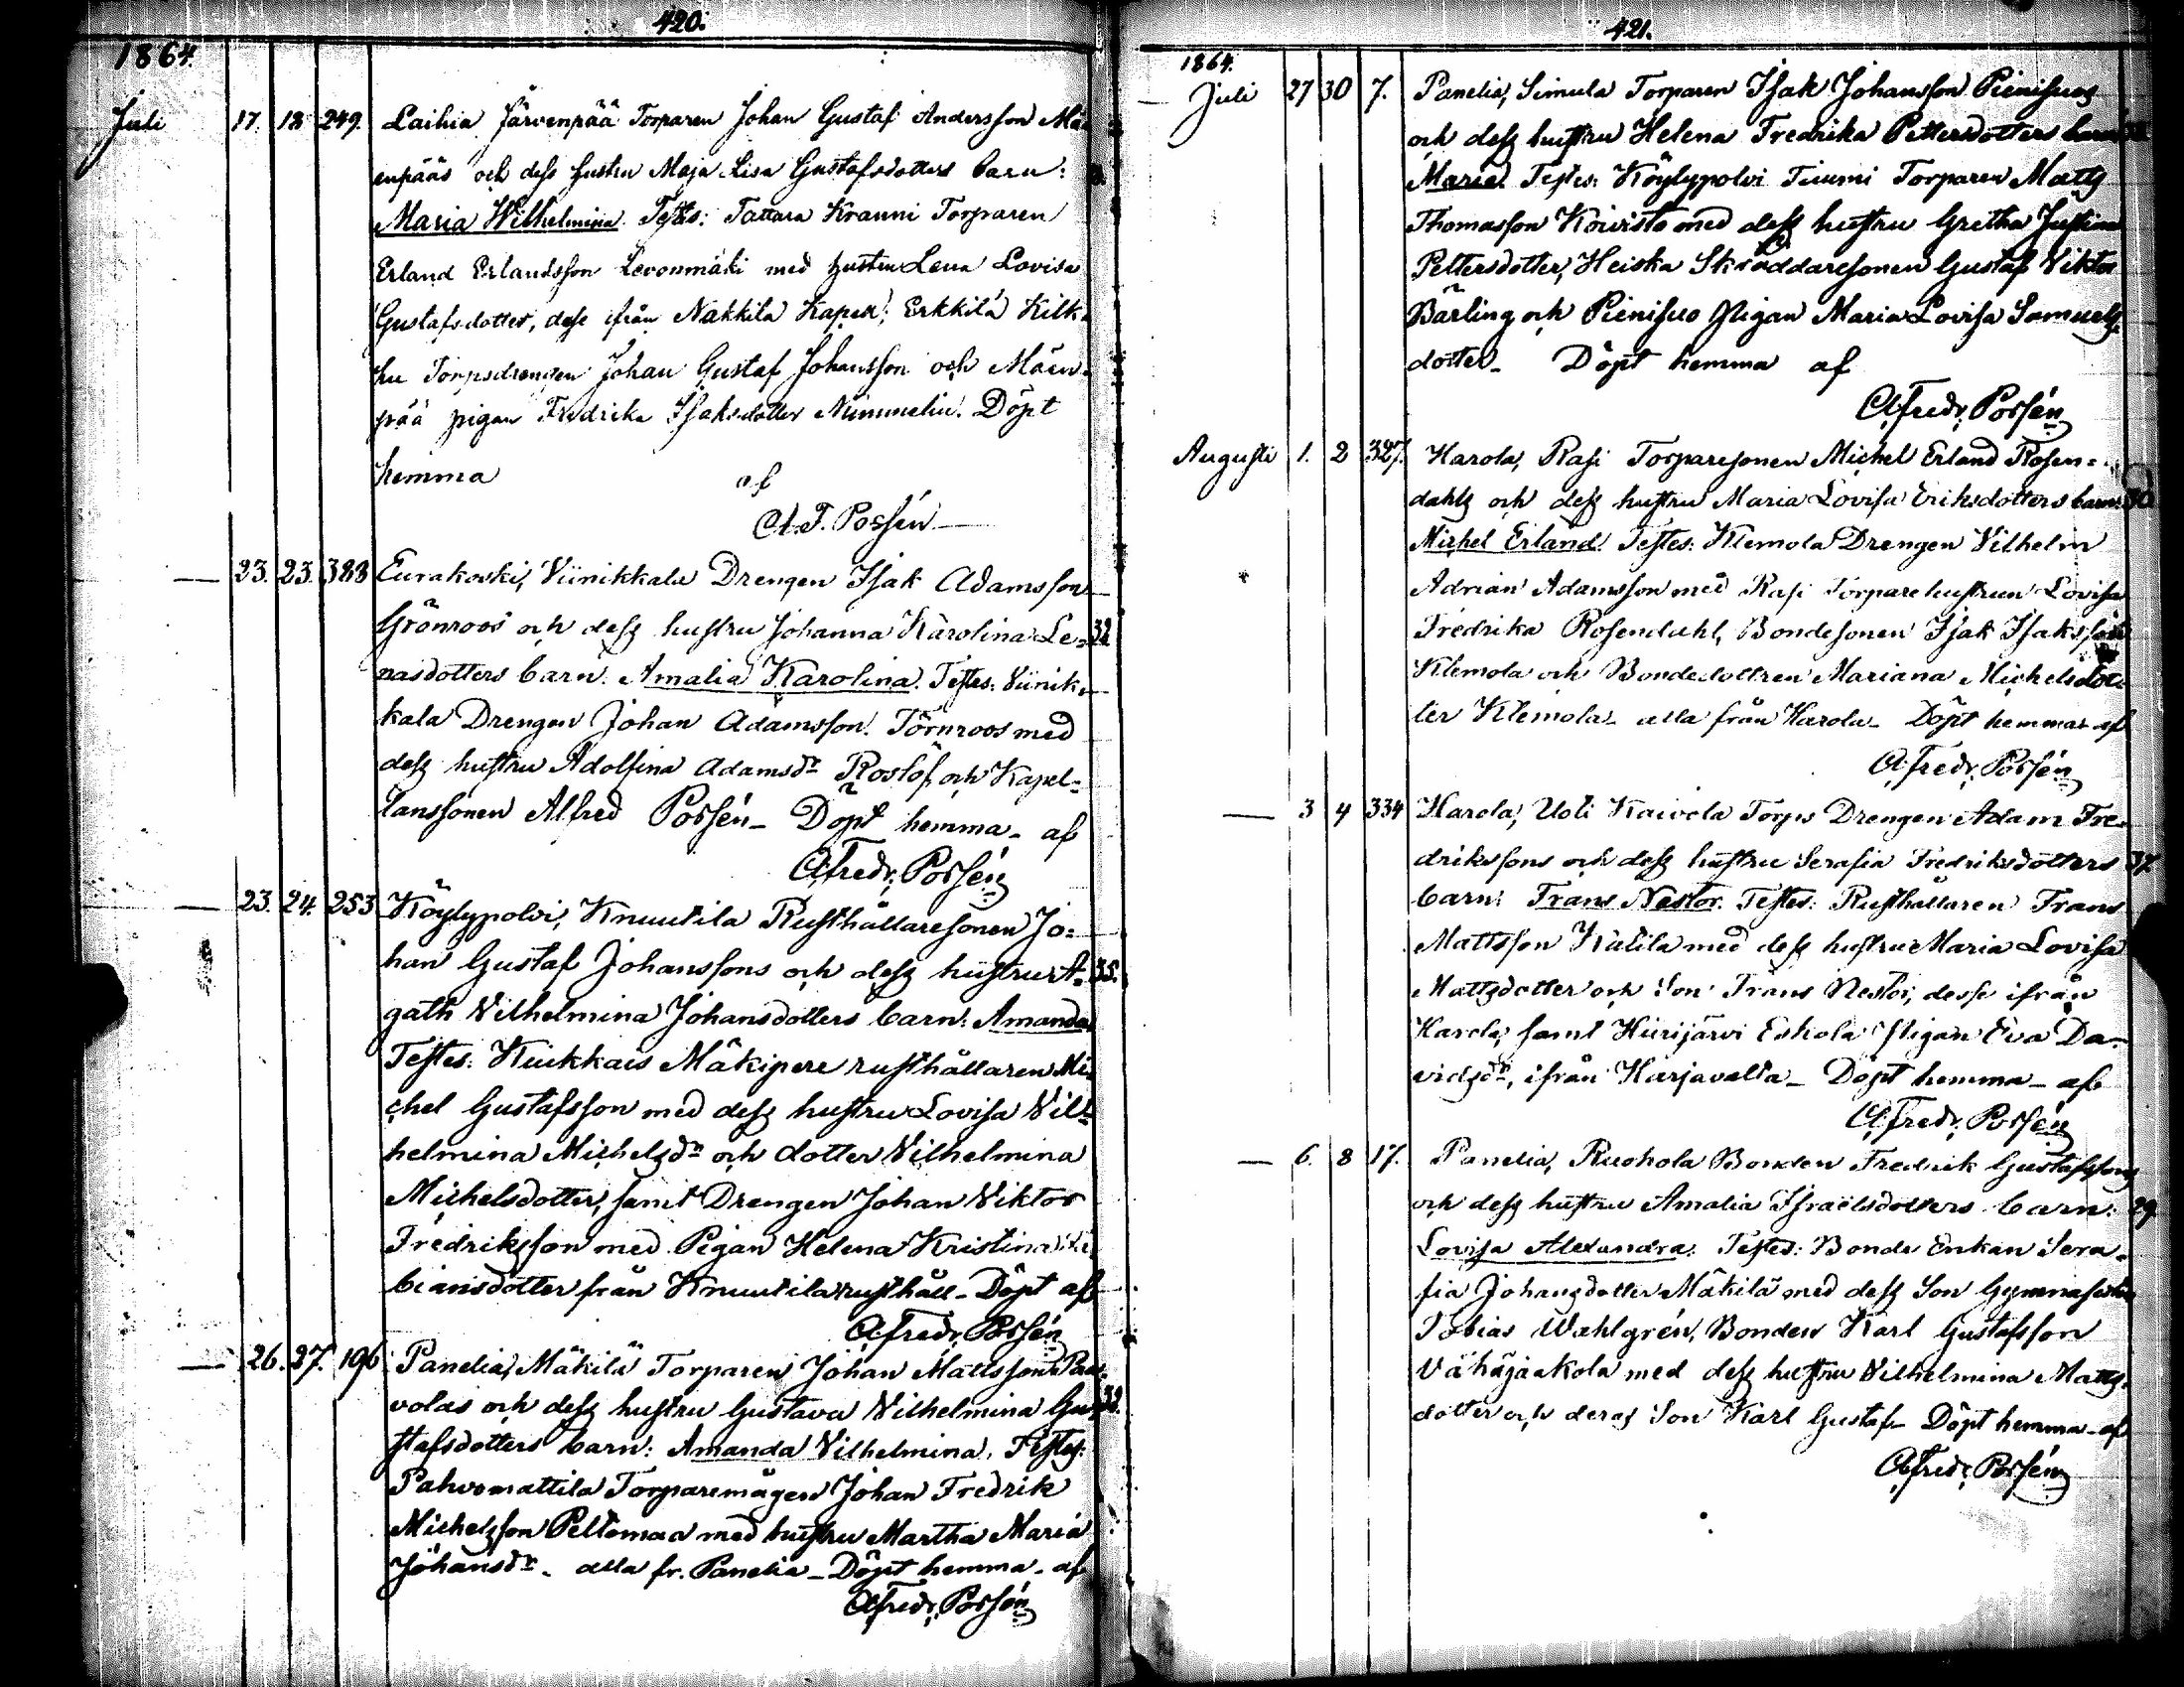 420.
1864.
Juli 17. 18 249. Laihia Järvenpää Torparen Johan Gustaf Andersson Mä-
enpääs och dess hustru Maja Lisa Gustafsdotters barn:
Maria Wilhelmina. Testes: Tattara Krauni Torparen
Erland Erlandsson Levonmäki med hustru Lena Lovisa
Gustafsdotter, desse ifrån Nakkila Kapell; Erkkilä Kilk-
ku Torpsdrengen Johan Gustaf Johansson och Mäen-
pää pigan Fredrika Isaksdotter Nummelin. Döpt
hemma af
A. F. Possén
— 23. 23. 388 Eurakoski, Viinikkala Drengen Isak Adamsson
Grönroos och dess hustru Johanna Karolina Le- 32
nasdotters barn: Amalia Karolina. Testes: Viinik-
kala Drengen Johan Adamsson Törnroos med
dess hustru Adolfina Adamsdr Roslöf och Kapel-
lanssonen Alfred Possén – Döpt hemma – af
A. Fredr. Possén
— 23. 24. 253 Köylypolvi, Knuutila Rusthållaresonen Jo-
han Gustaf Johanssons och dess hustru A- 35.
gath Vilhelmina Johansdotters barn: Amanda
Testes: Kiukkais Mäkipere rusthållaren Mi-
chel Gustafsson med dess hustru Lovisa Vil-
helmina Michelsdr och dotter Vilhelmina
Michelsdotter, samt Drengen Johan Viktor
Fredriksson med Pigan Helena Kristina
biansdotter från Knuutila rusthåll – Döpt af
A. Fredr. Possén
— 26. 27. 196 Panelia, Mäkilä Torparen Johan Mattssons Paa-
volas och dess hustru Gustava Vilhelmina Gu- 38.
stafsdotters barn: Amanda Vilhelmina. Testes:
Pahvomattila Torparemågen Johan Fredrik
Michelsson Peltomaa med hustru Martha Maria
Johansdr – alla fr. Panelia – Döpt hemma – af
A. Fredr. Possén
421.
1864.
Juli 27 30 7. Panelia, Simula Torparen Isak Johansson Pienisuos
och dess hustru Helena Fredrika Pettersdotters barn
Maria. Testes: Köylypolvi Tiumi Torparen Matts
Thomasson Koivisto med dess hustru Gretha Justina
Pettersdotter, Heiska Skräddaresonen Gustaf Viktor
Bärling och Pienisuo Pigan Maria Lovisa Samuels-
dotter – Döpt hemma af
A. Fredr. Possén
Augusti 1. 2 327. Harola, Rasi Torparesonen Michel Erland Rosen-
dahls och dess hustru Maria Lovisa Eriksdotters barn: 30
Michel Erland. Testes: Klemola Drengen Vilhelm
Adrian Adamsson med Rasi Torparehustrun Lovisa
Fredrika Rosendahl, Bondesonen Isak Isaksson
Klemola och Bondedottren Mariana Michelsdot-
ter Klemola – alla från Harola – Döpt hemma – af
A. Fredr. Possén
— 3 4 334 Harola, Uoti Kaivola Torps Drengen Adam Fre-
drikssons och dess hustru Serafia Fredriksdotters 37.
barn: Frans Nestor. Testes: Rusthållaren Frans
Mattsson Kalila med dess hustru Maria Lovisa
Mattsdotter och Son Frans Nestor, desse ifrån
Harola, samt Hiirijärvi Eskola Pigan Eva Da-
vidsdr, ifrån Harjavalta – Döpt hemma – af
A. Fredr. Possén
— 6. 8 17. Panelia, Ruohola Bonden Fredrik Gustafssons
och dess hustru Amalia Israelsdotters barn: 29.
Lovisa Alexandra. Testes: Bonde Enkan Sera-
fia Johansdotter Mäkilä med dess Son Gymnasisten
Tobias Wahlgrén, Bonden Karl Gustafsson
Vähäjaakola med dess hustru Vilhelmina Matts-
dotter och deras Son Karl Gustaf – Döpt hemma – af
A. Fredr. Possén